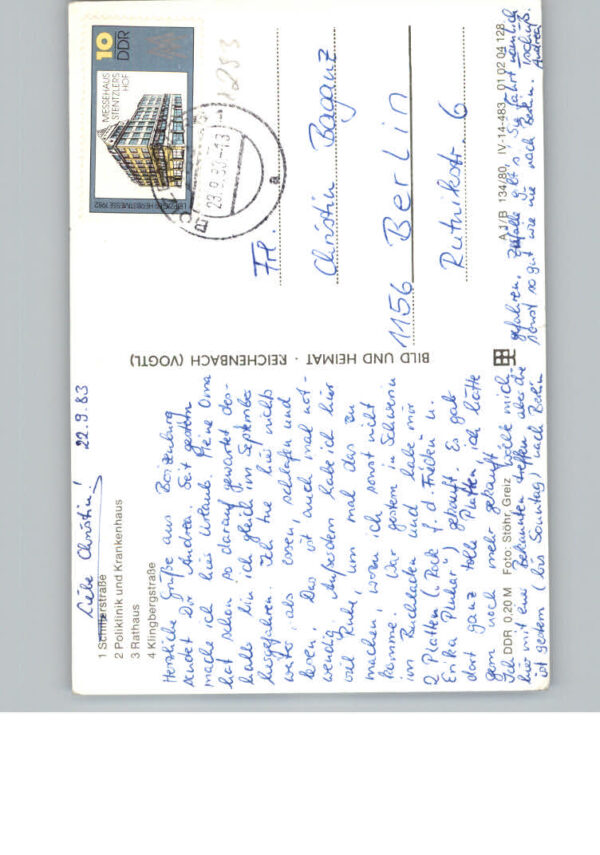 Liebe Christin! 22.9.83
1 Schillerstraße
2 Poliklinik und Krankenhaus
3 Rathaus
4 Klingbergstraße
Herzliche Grüße aus Boizenburg
sendet Dir Andrea. Seit gestern
mache ich hier Urlaub. Meine Oma
hat schon so darauf gewartet des-
halb bin ich gleich im September
hergefahren. Ich tue hier nichts
weiter, als essen, schlafen und
lesen. Das ist auch mal not-
wendig. Außerdem habe ich hier
viel Ruhe, um mal das zu
machen, wozu ich sonst nicht
komme. War gestern in Schwerin
im Buchladen und habe mir
2 Platten („Rock f. d. Frieden“ u.
Erika Pluhar“) gekauft. Es gab
dort ganz tolle Platten, ich hätte
gern noch mehr gekauft
Ich wollte mich
hier mit eine Bekannten treffen aber die
ist gestern (bis Sonntag) nach Berlin
gefahren. Zufälle gibt's. Sie fährt nämlich
sonst so gut wie nie nach Berlin. Tschüß
Andrea
DDR 0,20 M Foto: Stöhr, Greiz
A 1/B 134/80, IV-14-483 01 02 04 128
BILD UND HEIMAT · REICHENBACH (VOGTL)
10
DDR
MESSEHAUS
STENTZLERS
HOF
LEIPZIGER HERBSTMESSE 1982
23.9.83-13
a
Frl.
Christin Baganz
1156 Berlin
Rutnikstr. 6